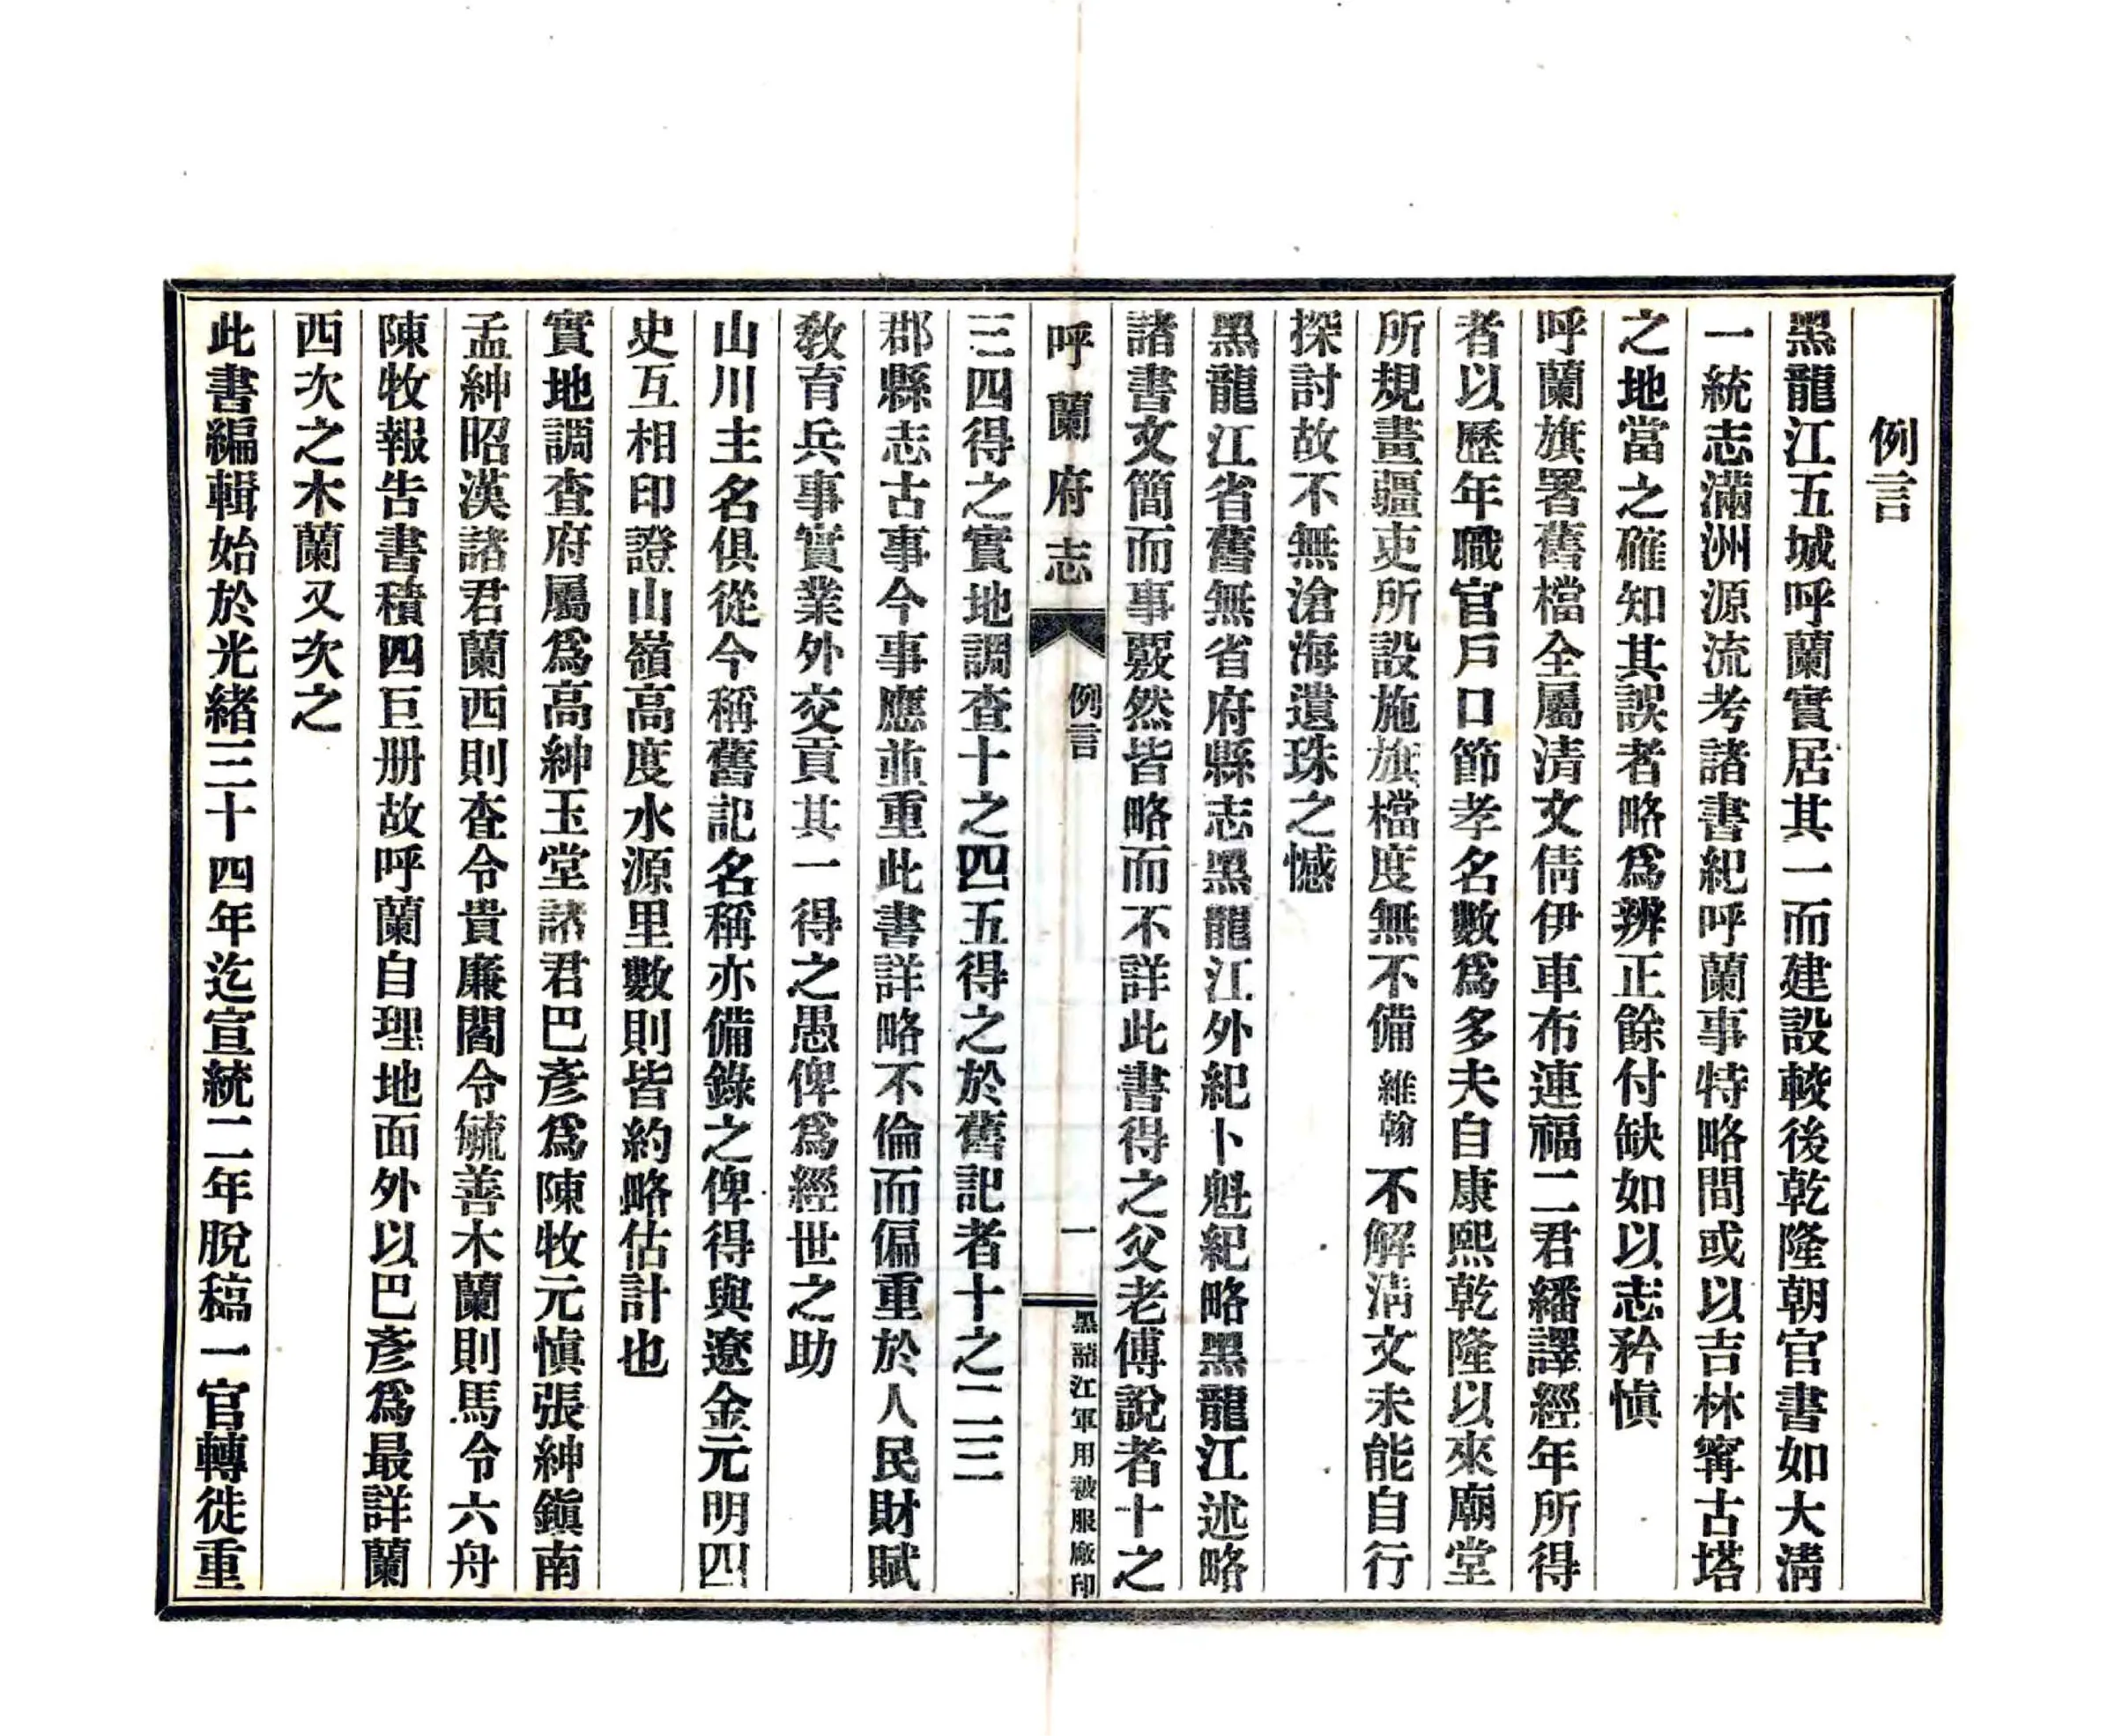 例言
黑龍江五城呼蘭實居其一而建設較後乾隆朝官書如大淸
一統志滿洲源流考諸書紀呼蘭事特略間或以吉林寗古塔
之地當之確知其誤者略爲辨正餘付缺如以志矜愼
呼蘭旗署舊檔全屬淸文倩伊車布連福二君繙譯經年所得
者以歷年職官戶口節孝名數爲多夫自康熙乾隆以來廟堂
所規畫疆吏所設施旗檔度無不備維翰不解淸文未能自行
探討故不無滄海遺珠之憾
黑龍江省舊無省府縣志黑龍江外紀卜魁紀略黑龍江述略
諸書文簡而事覈然皆略而不詳此書得之父老傳說者十之
呼蘭府志
例言
一
黑龍江軍用被服廠印
三四得之實地調查十之四五得之於舊記者十之二三
郡縣志古事今事應並重此書詳略不倫而偏重於人民財賦
敎育兵事實業外交貢其一得之愚俾爲經世之助
山川主名俱從今稱舊記名稱亦備錄之俾得與遼金元明四
史互相印證山嶺高度水源里數則皆約略估計也
實地調查府屬爲高紳玉堂諸君巴彥爲陳牧元愼張紳鎭南
孟紳昭漢諸君蘭西則查令貴廉閻令毓善木蘭則馬令六舟
陳牧報告書積四巨册故呼蘭自理地面外以巴彥爲最詳蘭
西次之木蘭又次之
此書編輯始於光緒三十四年迄宣統二年脫稿一官轉徙重